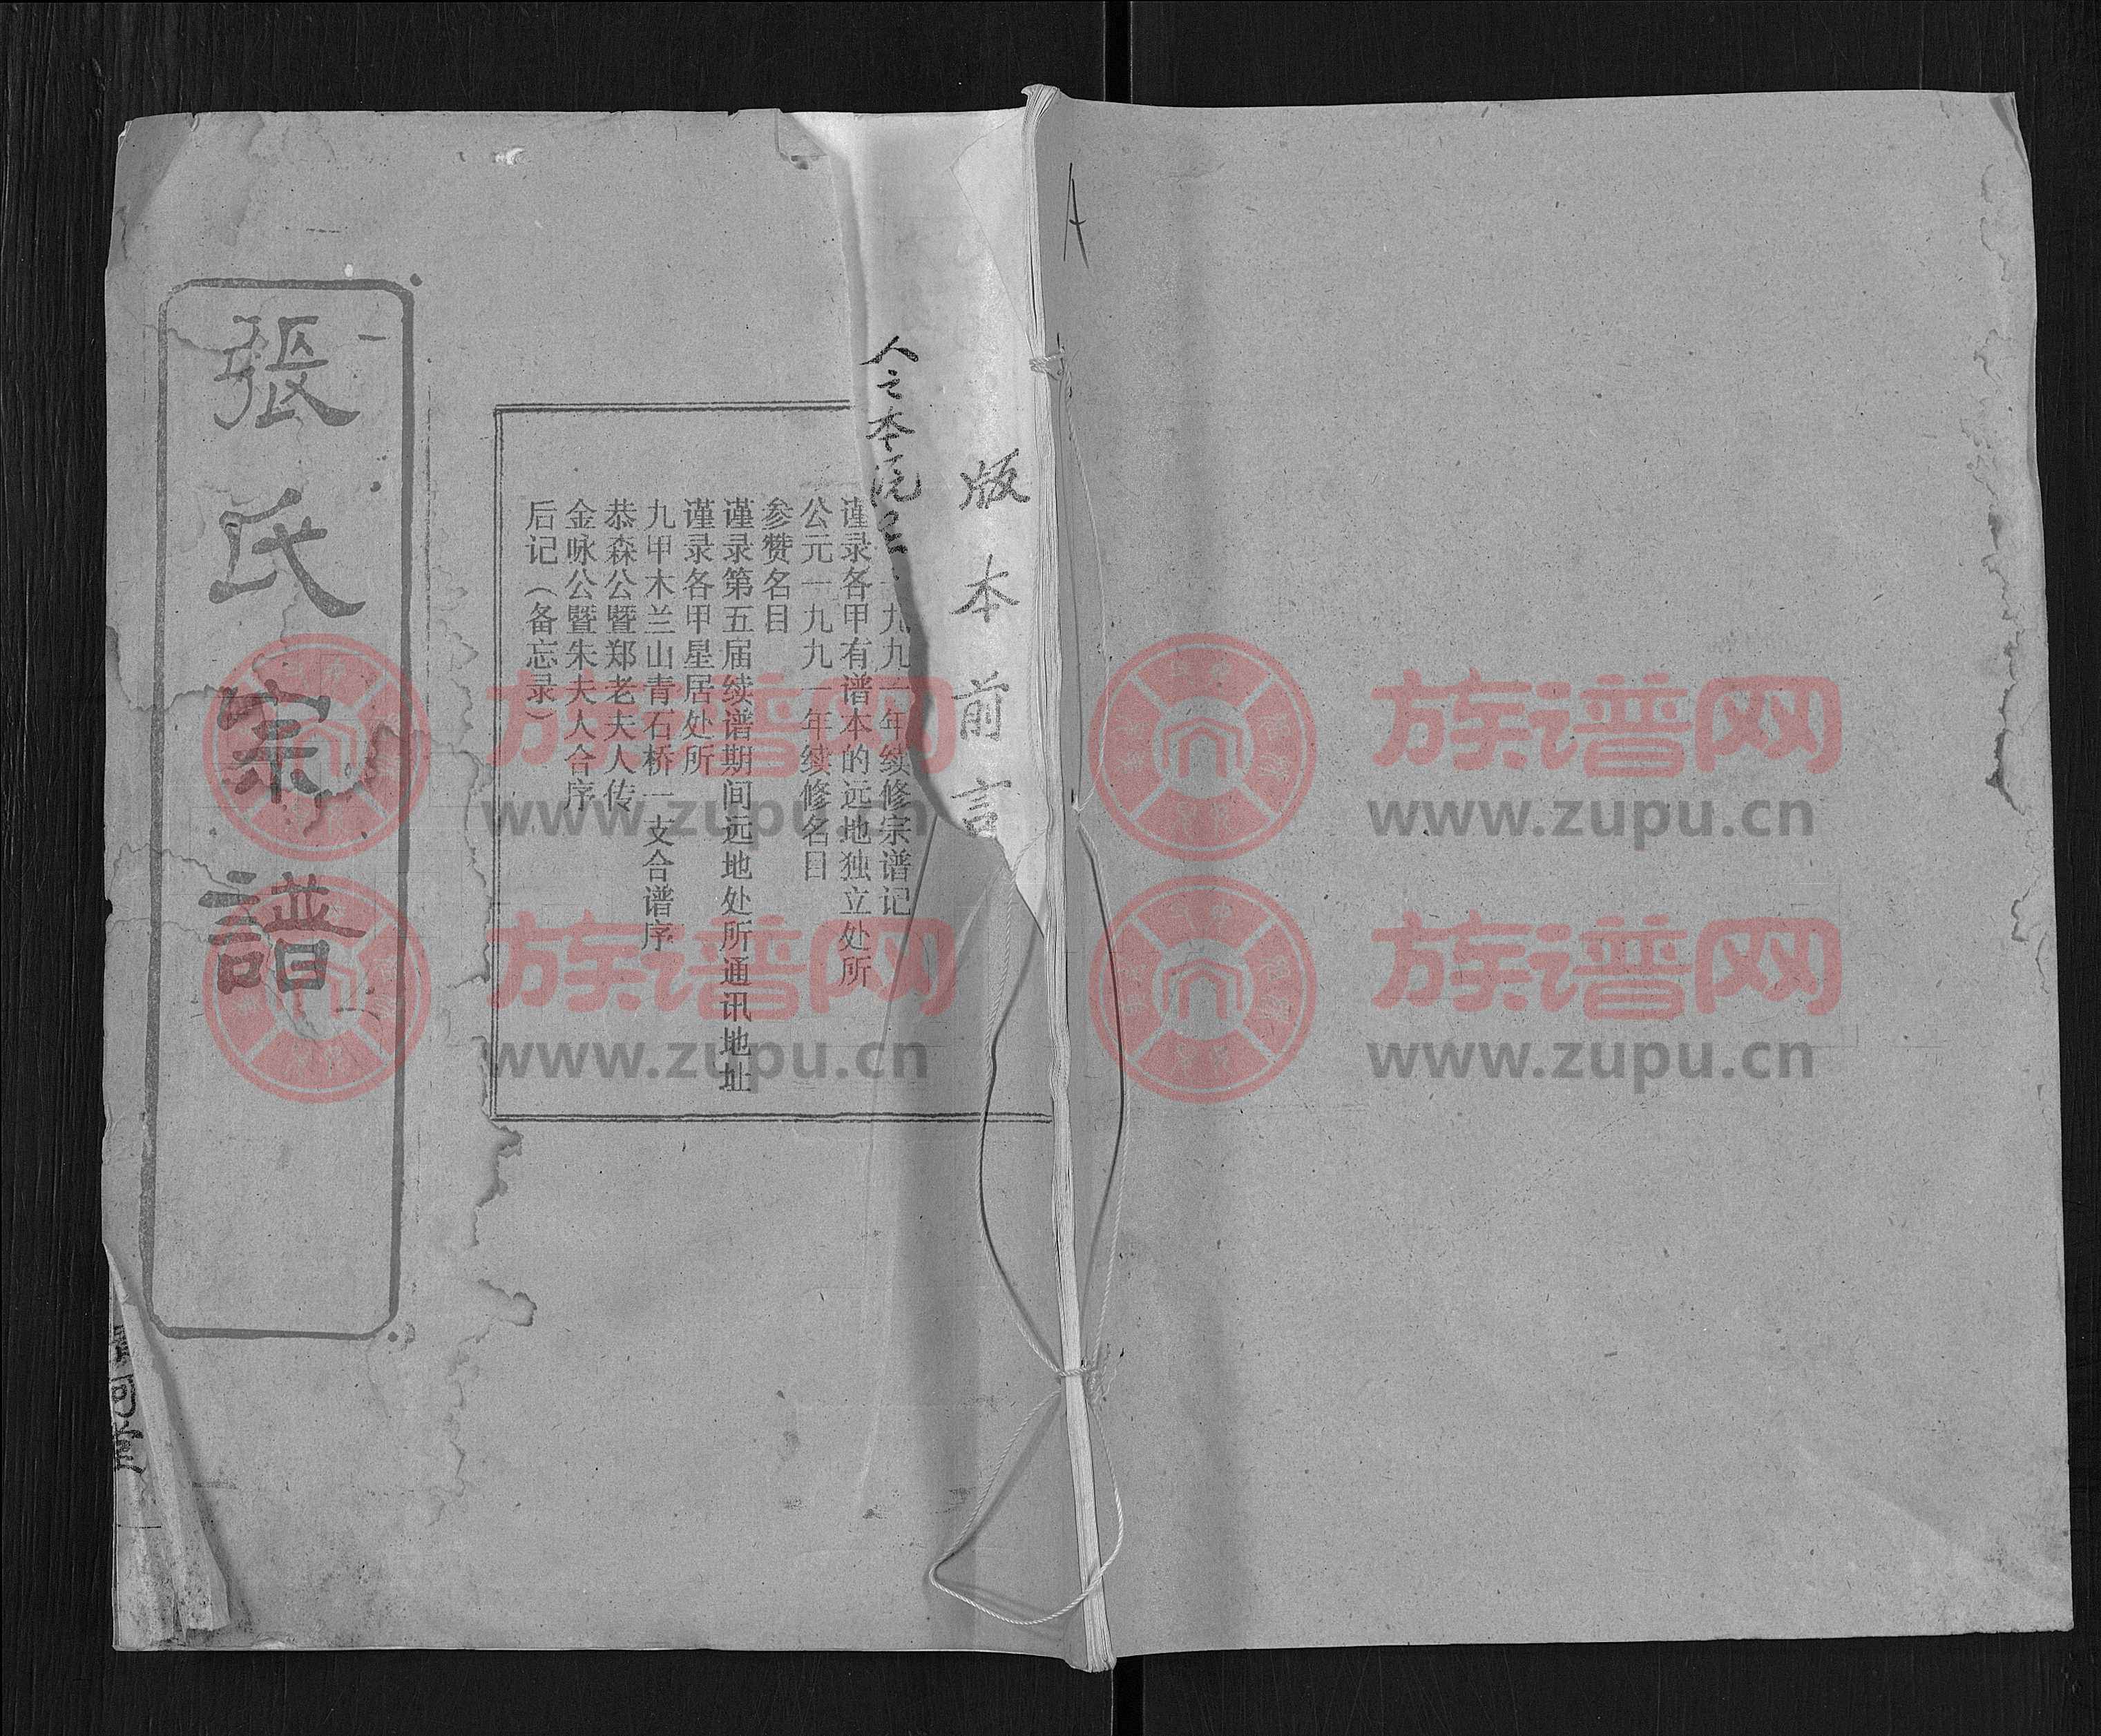 A
版本前言
人之本
九九一年续修宗谱记
谨录各甲有谱本的远地独立处所
公元一九九一年续修名目
参赞名目
谨录第五届续谱期间远地处所通讯地址
谨录各甲星居处所
九甲木兰山青石桥一支合谱序
恭森公暨郑老夫人传
金咏公暨朱夫人合序
后记（备忘录）
張氏宗譜
族谱网
www.zupu.cn
族谱网
www.zupu.cn
族谱网
www.zupu.cn
族谱网
www.zupu.cn